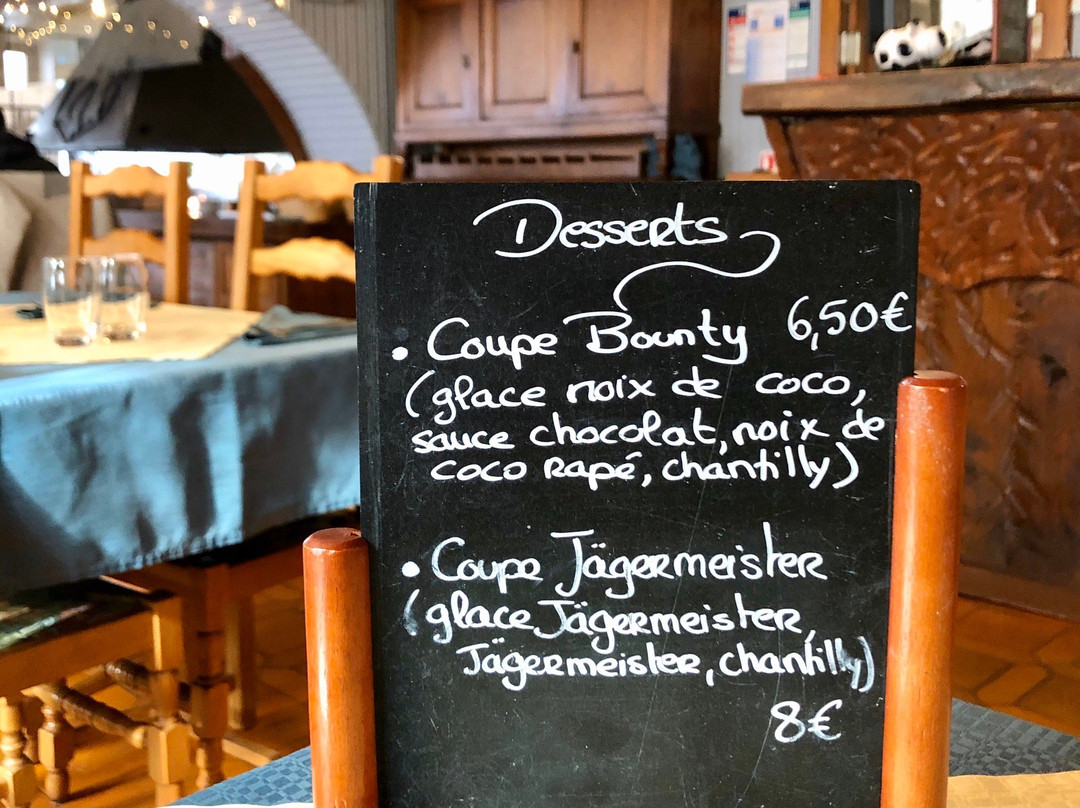 Desserts
• Coupe Bounty 6,50€
(glace noix de coco,
sauce chocolat, noix de
coco rapé, chantilly)
• Coupe Jägermeister
(glace Jägermeister,
Jägermeister, chantilly)
8€